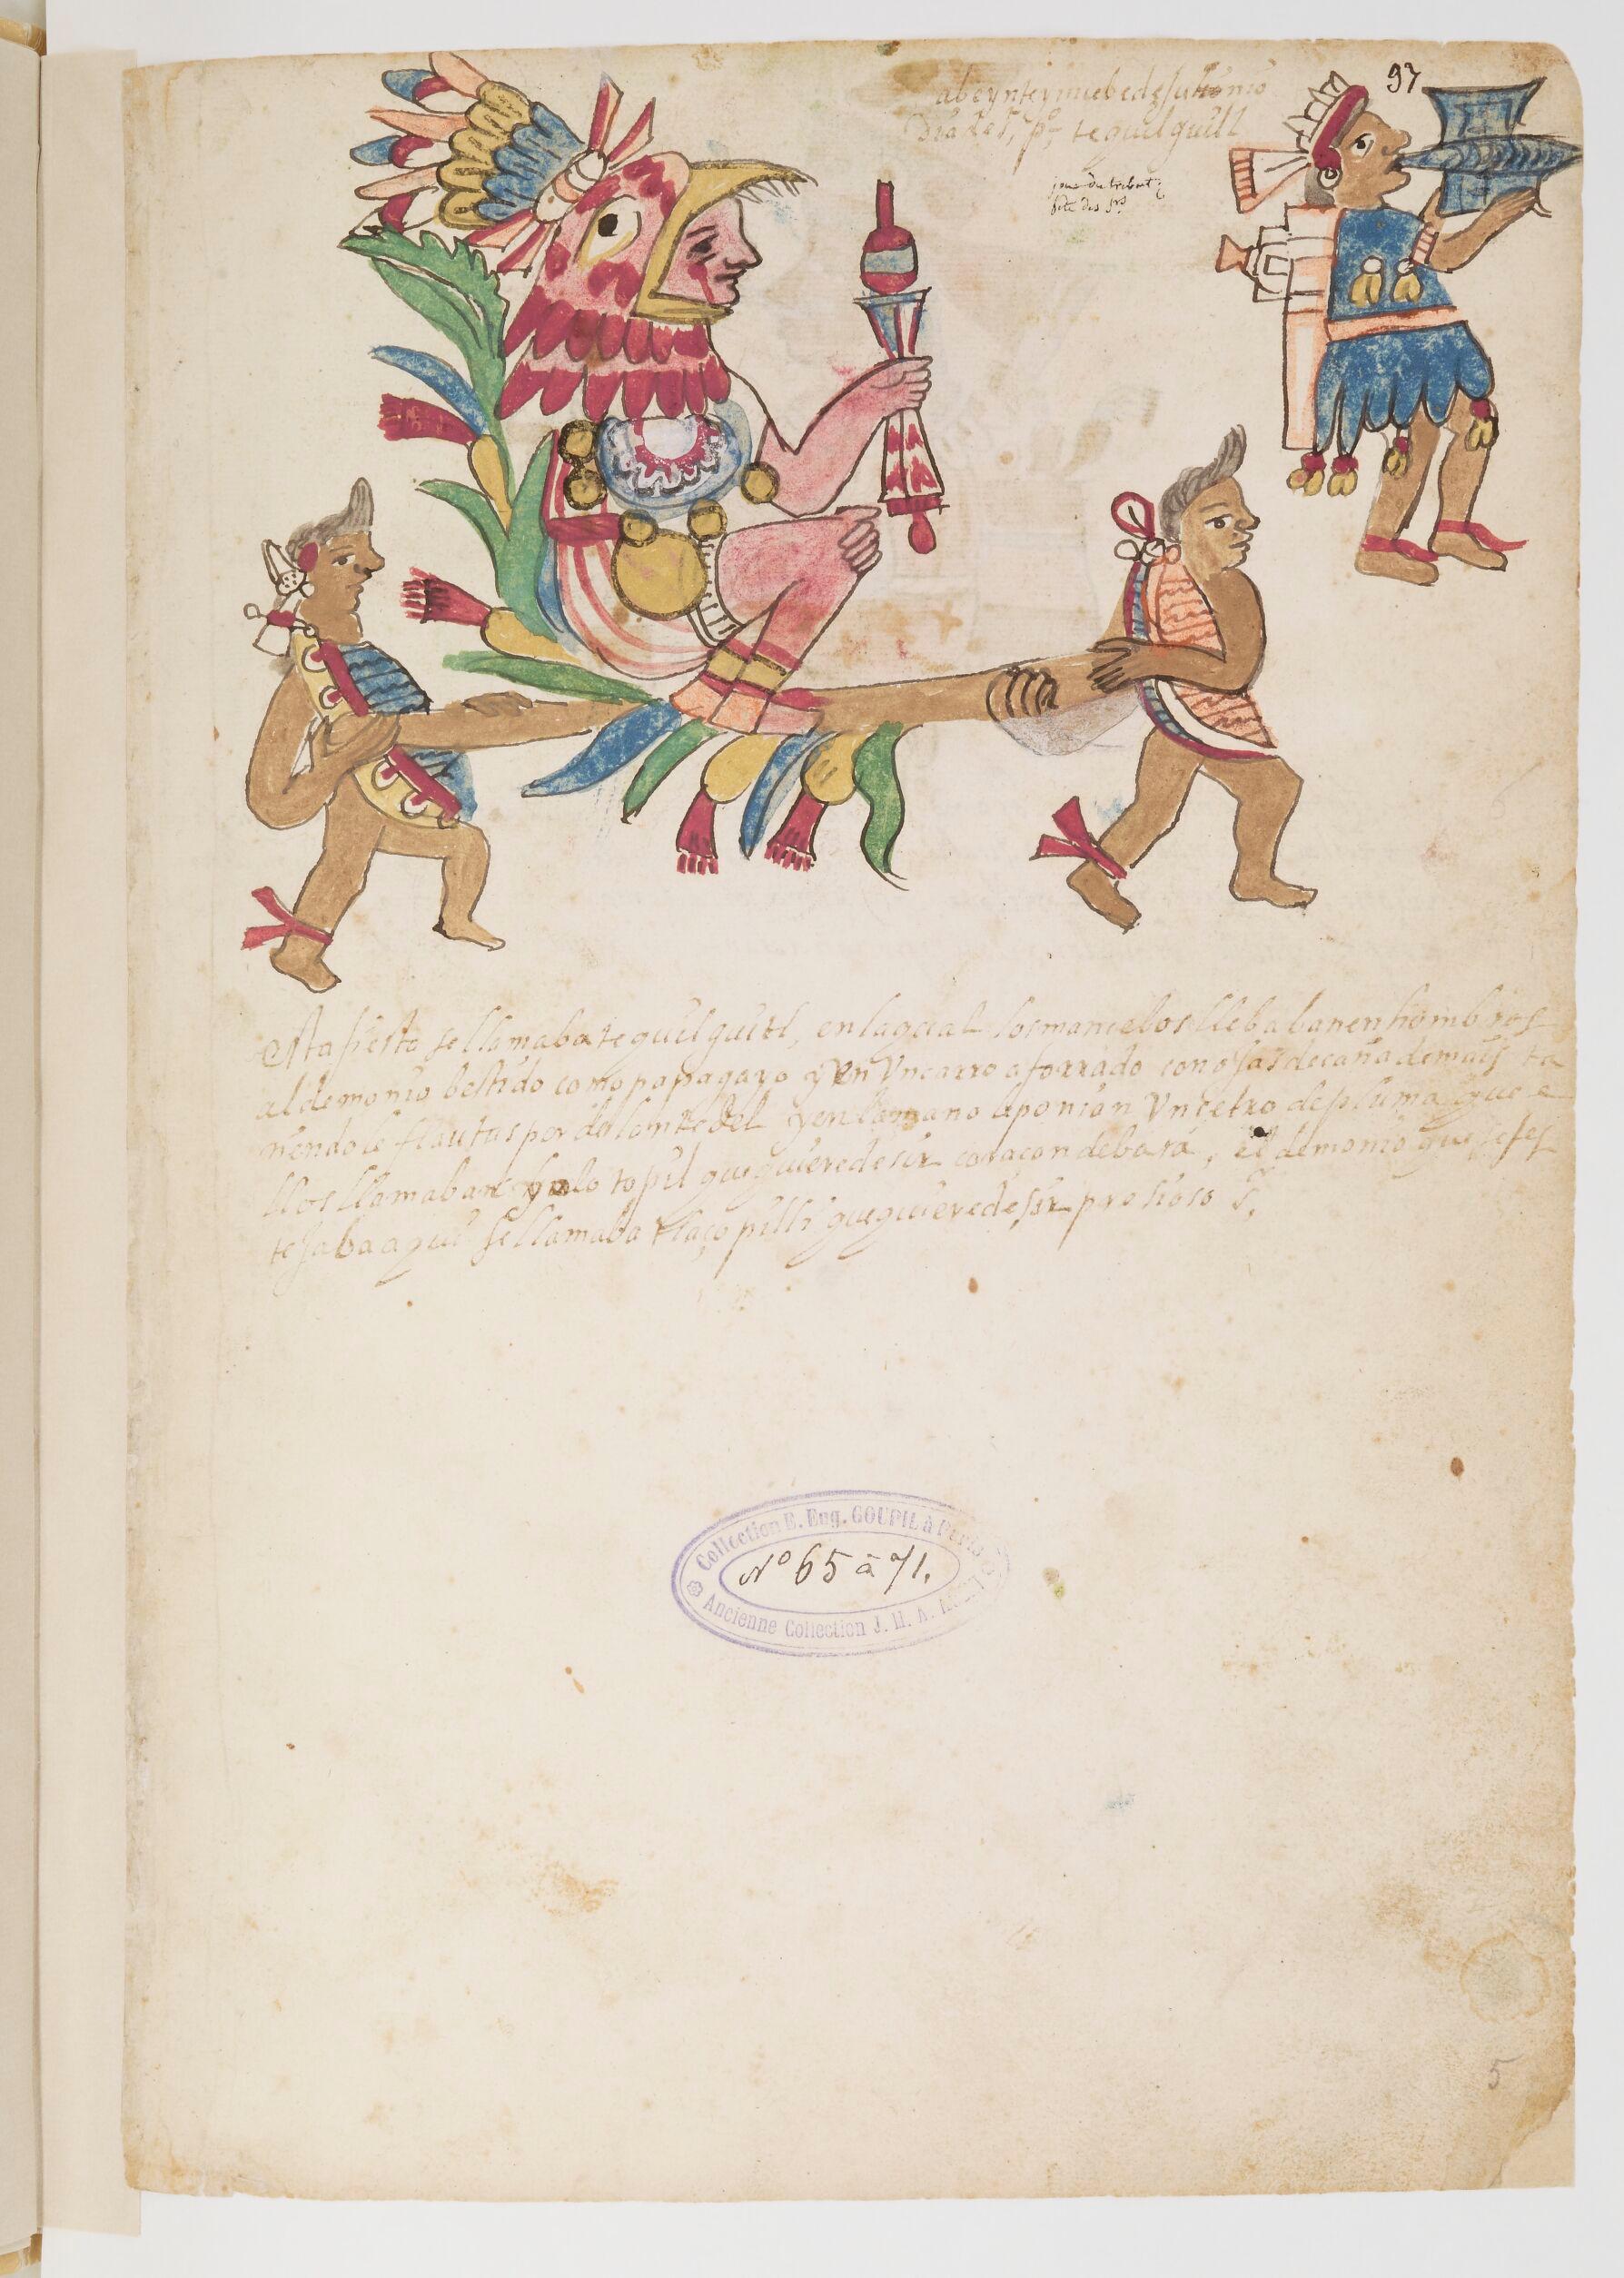 97
a beynte y nuebe de Junio
Dia de S. p.º tequilguitl
jour du tribut
fête des Srs
Esta fiesta se llamaba tequilguitl, en la qual los mancebos llebaban en hombros
al demonio bestido como papagayo y en Un carro aforrado con ojas de caña de mais ta
ñendole flautas por delante del y en la mano le ponian Un cetro de pluma que e
llos llamaban yolo topil que quiere desir coraçon de bara, el demonio que se fes
tejaba aqui se llamaba tlaço pilli que quiere desir presioso S.
Collection E. Eug. GOUPIL à Paris
Nº 65 à 71.
Ancienne Collection J. M. A.
5